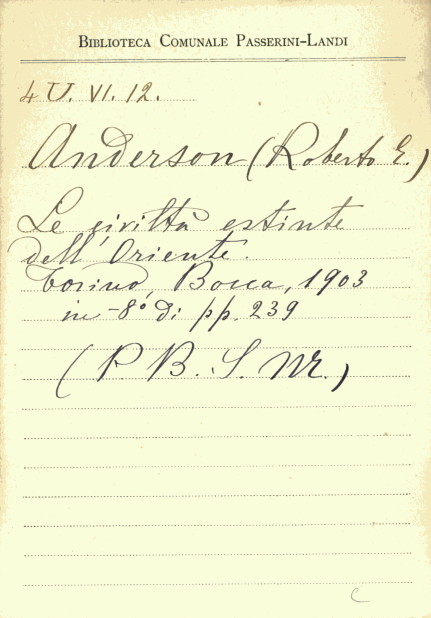 BIBLIOTECA COMUNALE PASSERINI-LANDI
4 U. VI. 12.
Anderson (Roberto E.)
Le civiltà estinte
dell'Oriente.
Torino, Bocca, 1903
in-8º di pp. 239
(P. B. S. M.)
C